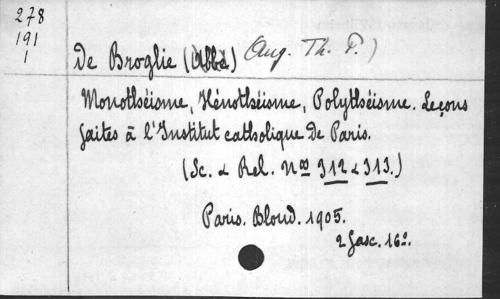 278
191
1
De Broglie (Abbé) (Aug. Th. P.)
Monothéisme, Hénothéisme, Polythéisme. Leçons
faites à l'Institut catholique de Paris.
(Sc. & Rel. Nos 312 & 313.)
Paris. Bloud. 1905.
2 fasc. 16º.